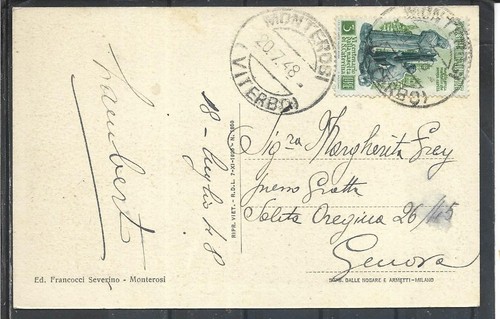 MONTEROSI
20.7.48
(VITERBO)
MON
ERBO)
5
LIRE
Lambert
18-luglio 48
RIPR. VIET. - R.D.L. 7-XI-1925 - N.
Sig.ra Margherita Grey
presso Gratta
Salita Oregina 26/45
Genova
Ed. Francocci Severino - Monterosi
DALLE NOGARE E ARMETTI - MILANO